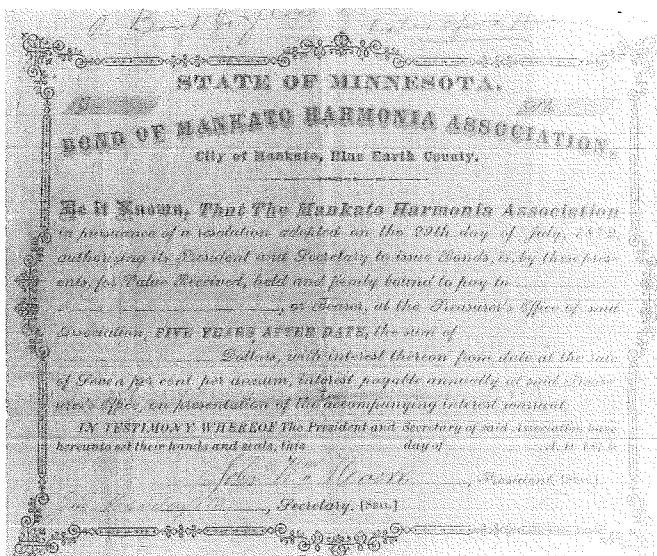 STATE OF MINNESOTA.
BOND OF MANKATO HARMONIA ASSOCIATION,
City of Mankato, Blue Earth County.
Be it Known, That The Mankato Harmonia Association
in pursuance of a resolution adopted on the 29th day of July,
authorizing its President and Secretary to issue Bonds, is, by these pres-
ents, for Value Received, held and firmly bound to pay to
, or Bearer, at the Treasurer's Office of said
Association, FIVE YEARS AFTER DATE, the sum of
Dollars, with interest thereon from date at the rate
of Seven per cent. per annum, interest payable annually at said Treas-
urer's Office, on presentation of the accompanying interest warrant.
IN TESTIMONY WHEREOF The President and Secretary of said Association have
hereunto set their hands and seals, this day of
John , President, [Seal.]
, Secretary. [Seal.]